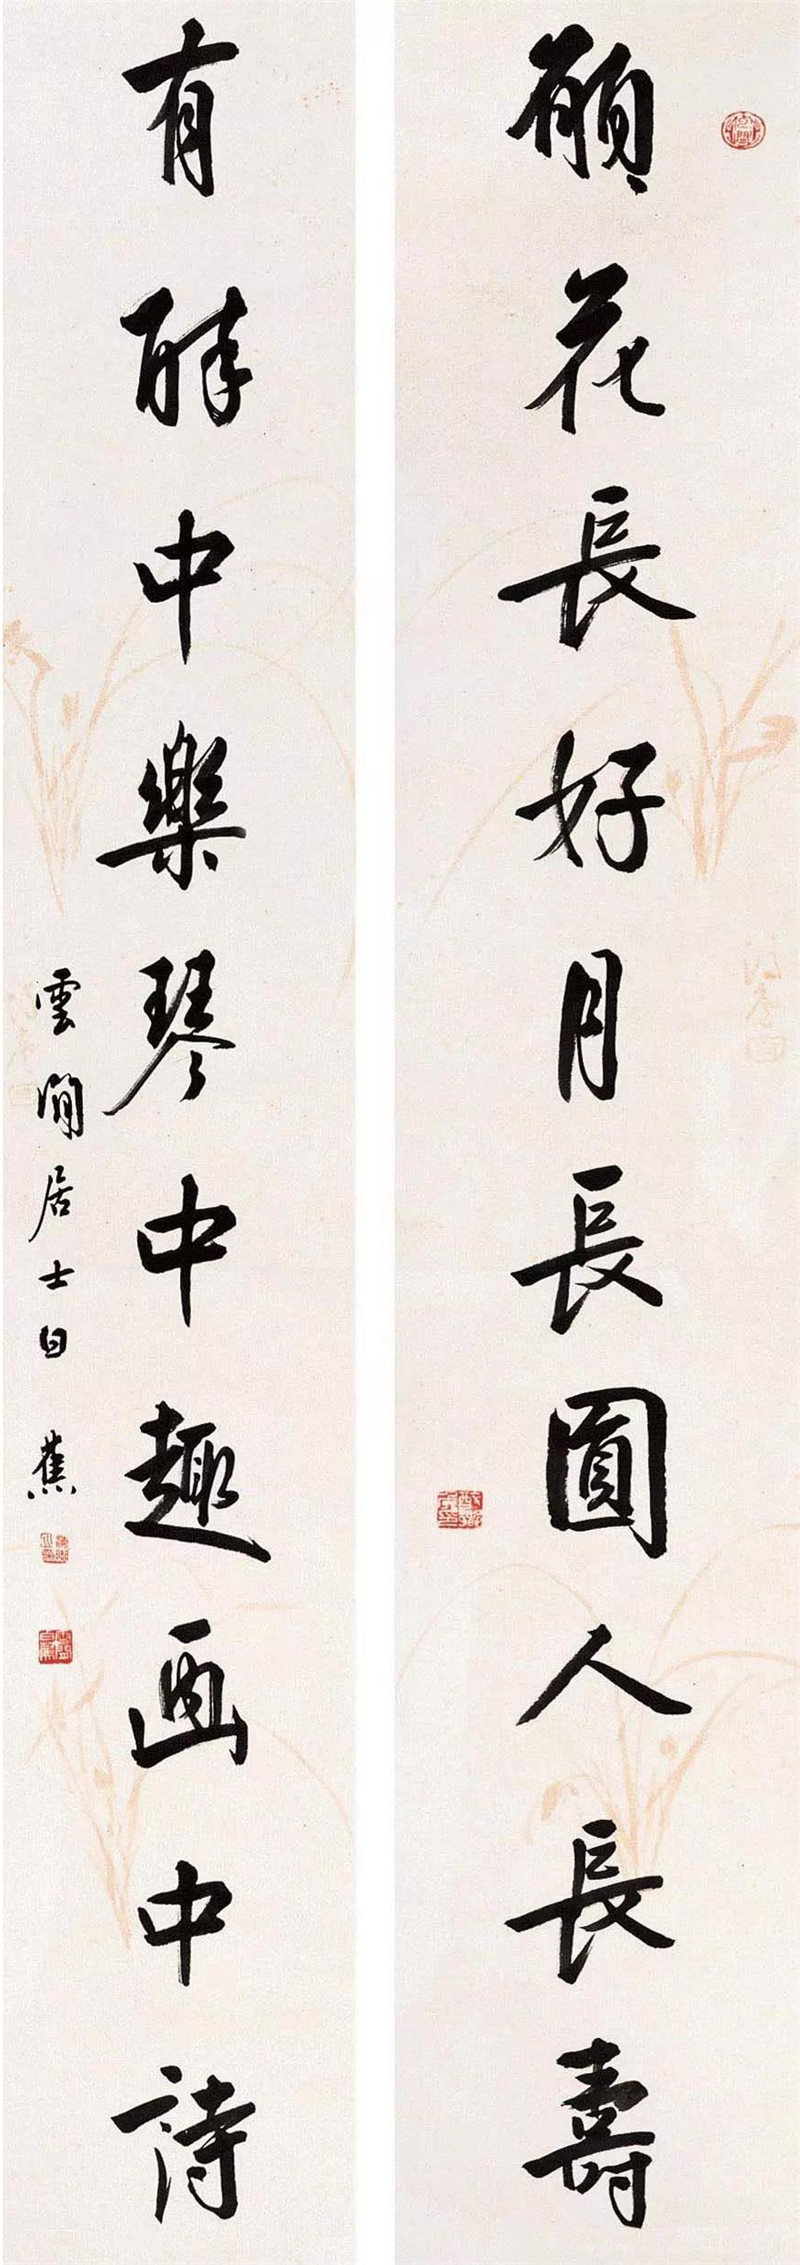 願花長好月長圓人長壽
有醉中樂琴中趣画中詩
雲閒居士白蕉